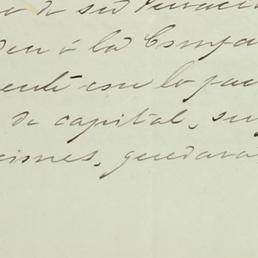 de su
den á la Compa
ente con lo pac
de capital, su
ciones, quedara